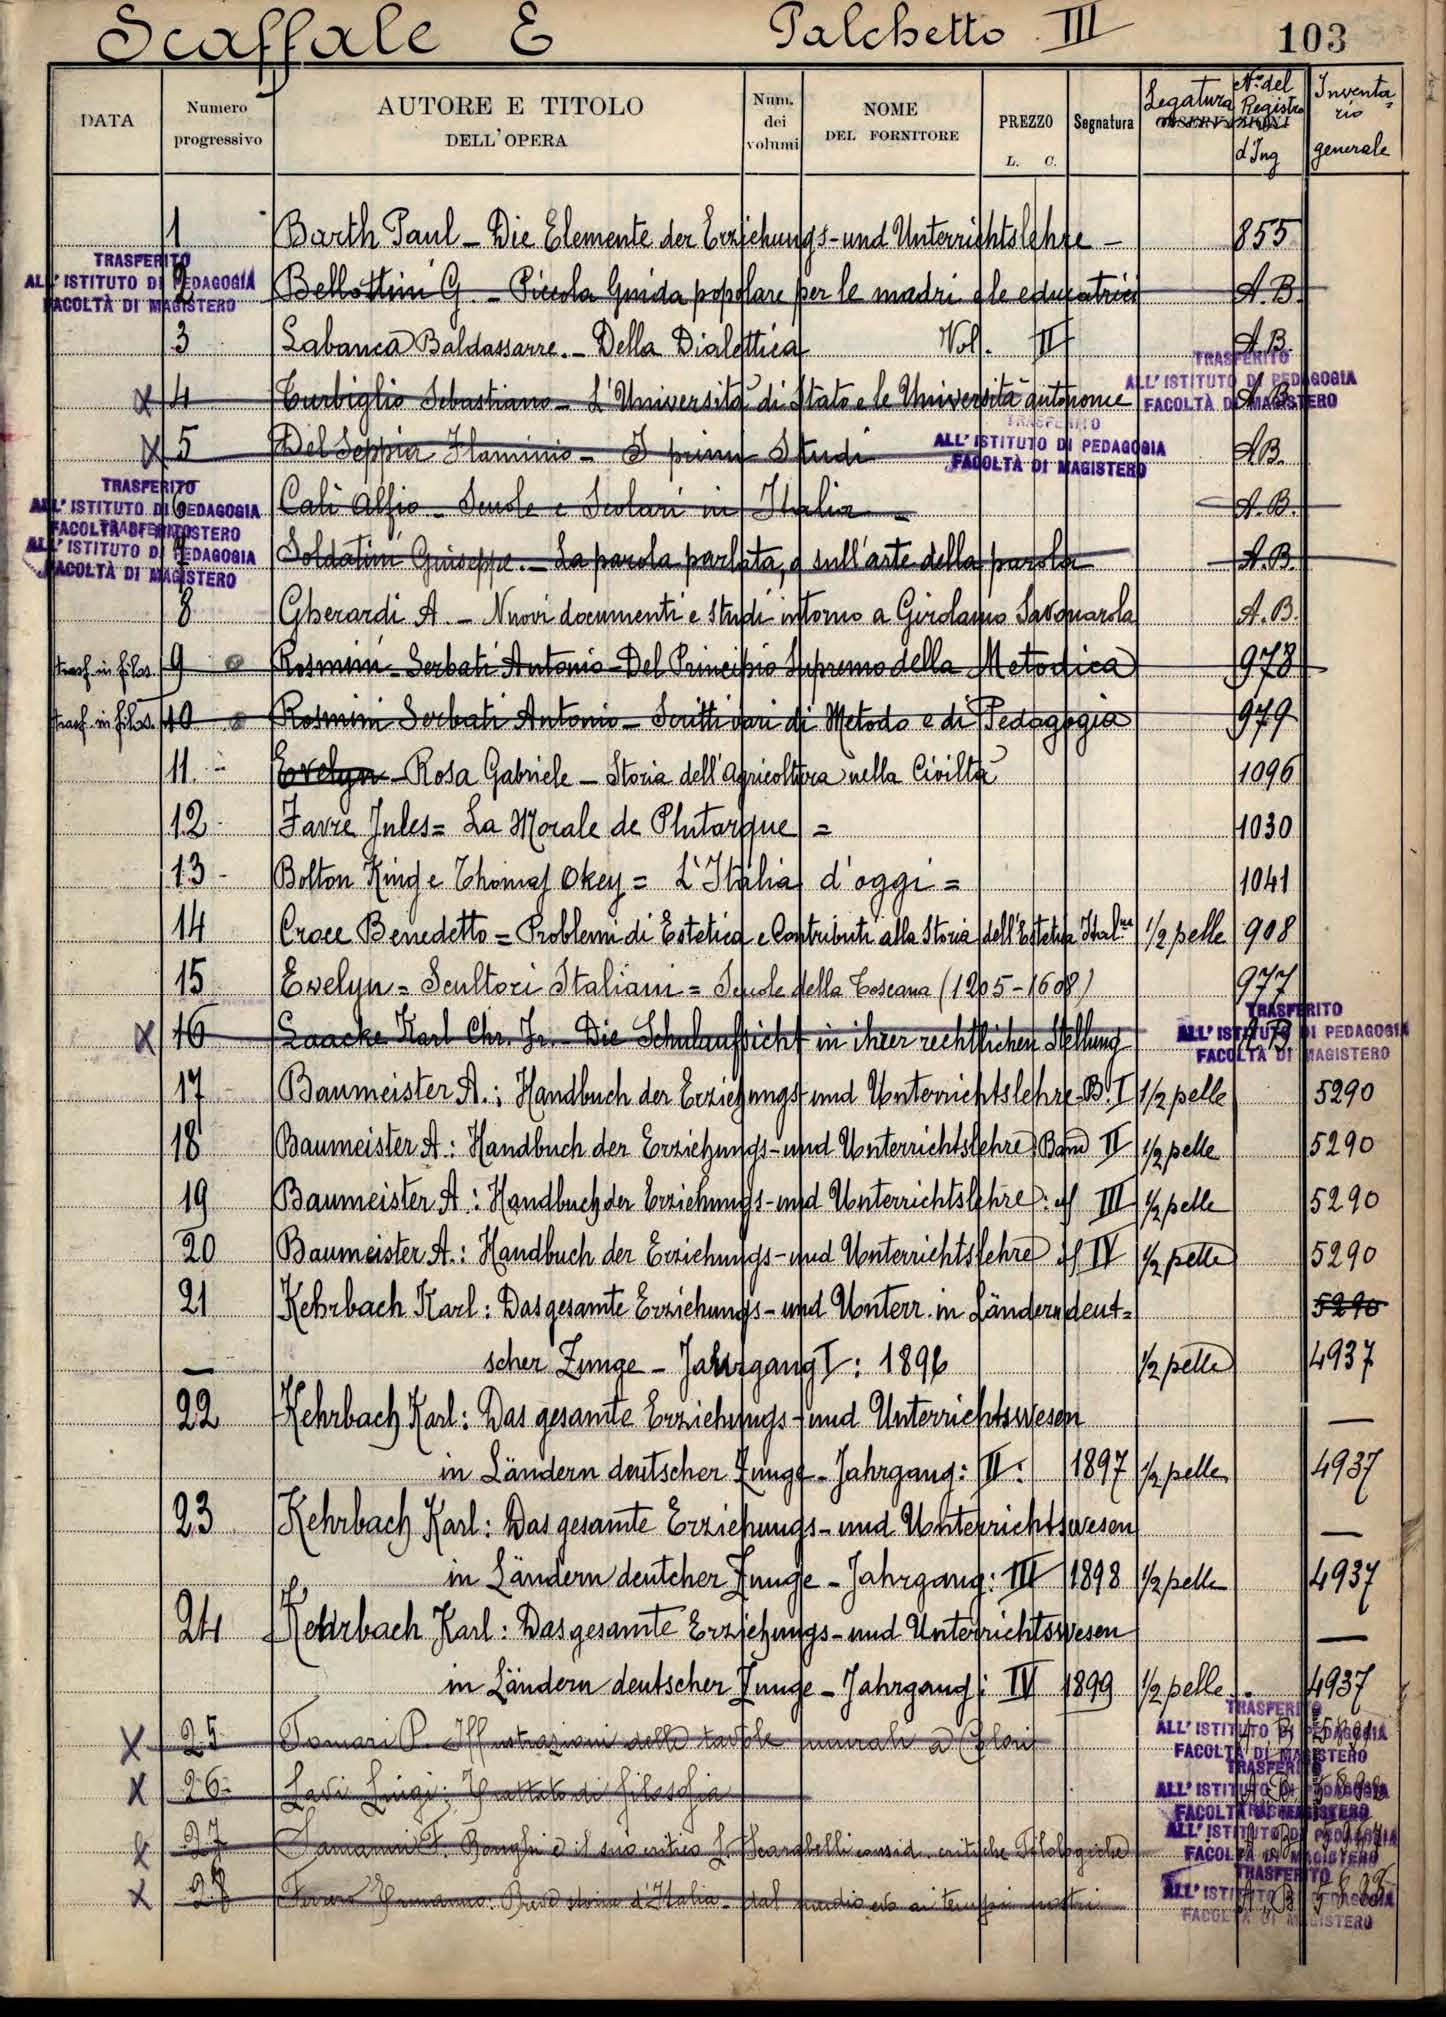 Scaffale E Palchetto III 103
DATA Numero progressivo AUTORE E TITOLO DELL'OPERA Num. dei volumi NOME DEL FORNITORE PREZZO L. C. Segnatura Legatura OSSERVAZIONI N.o del Registro d'Ing Inventario generale
1 Barth Paul - Die Elemente der Erziehungs- und Unterrichtslehre - 855
TRASFERITO
ALL'ISTITUTO DI PEDAGOGIA
FACOLTÀ DI MAGISTERO
2 Bellottini G. - Piccola Guida popolare per le madri e le educatrici A.B.
3 Labanca Baldassarre. - Della Dialettica Vol. II A.B.
TRASFERITO
ALL'ISTITUTO DI PEDAGOGIA
FACOLTÀ DI MAGISTERO
X 4 Turbiglio Sebastiano - L'Università di Stato e le Università autonome A.B.
TRASFERITO
ALL'ISTITUTO DI PEDAGOGIA
FACOLTÀ DI MAGISTERO
X 5 Del Seppia Flaminio - I primi Studi A.B.
TRASFERITO
ALL'ISTITUTO DI PEDAGOGIA
FACOLTÀ DI MAGISTERO
6 Calì Alfio - Scuole e Scolari in Italia - A.B.
TRASFERITO
ALL'ISTITUTO DI PEDAGOGIA
FACOLTÀ DI MAGISTERO
7 Soldatini Giuseppe. - La parola parlata, o sull'arte della parola A.B.
8 Gherardi A. - Nuovi documenti e studi intorno a Girolamo Savonarola A.B.
trasf. in filos. 9 Rosmini - Serbati Antonio - Del Principio Supremo della Metodica 978
trasf. in filos. 10 Rosmini Serbati Antonio - Scritti vari di Metodo e di Pedagogia 979
11 Evelyn - Rosa Gabriele - Storia dell'Agricoltura nella Civiltà 1096
12 Favre Jules = La Morale de Plutarque = 1030
13 Bolton King e Thomas Okey = L'Italia d'oggi = 1041
14 Croce Benedetto = Problemi di Estetica e Contributi alla Storia dell'Estetica Ital.na 1/2 pelle 908
15 Evelyn = Scultori Italiani = Scuole della Toscana (1205-1608) 977
TRASFERITO
ALL'ISTITUTO DI PEDAGOGIA
FACOLTÀ DI MAGISTERO
X 16 Laacke Karl Chr. Fr. - Die Schulaufsicht in ihrer rechtlichen Stellung A.B.
17 Baumeister A.: Handbuch der Erziehungs- und Unterrichtslehre - B. I 1/2 pelle 5290
18 Baumeister A.: Handbuch der Erziehungs- und Unterrichtslehre Band II 1/2 pelle 5290
19 Baumeister A.: Handbuch der Erziehungs- und Unterrichtslehre: III 1/2 pelle 5290
20 Baumeister A.: Handbuch der Erziehungs- und Unterrichtslehre IV 1/2 pelle 5290
21 Kehrbach Karl: Das gesamte Erziehungs- und Unterr. in Ländern deut= 5290
— scher Zunge - Jahrgang I: 1896 1/2 pelle 4937
22 Kehrbach Karl: Das gesamte Erziehungs- und Unterrichtswesen —
in Ländern deutscher Zunge - Jahrgang: II: 1897 1/2 pelle 4937
23 Kehrbach Karl: Das gesamte Erziehungs- und Unterrichtswesen —
in Ländern deutcher Zunge - Jahrgang: III 1898 1/2 pelle 4937
24 Kehrbach Karl: Das gesamte Erziehungs- und Unterrichtswesen —
in Ländern deutscher Zunge - Jahrgang: IV 1899 1/2 pelle 4937
TRASFERITO
ALL'ISTITUTO DI PEDAGOGIA
FACOLTÀ DI MAGISTERO
X 25 Tomari P. Illustrazioni delle tavole murali a Colori
TRASFERITO
ALL'ISTITUTO DI PEDAGOGIA
FACOLTÀ DI MAGISTERO
X 26 Luigi: Trattato di filosofia
ALL'ISTITUTO DI PEDAGOGIA
FACOLTÀ DI MAGISTERO
X 27 F. Bonghi e il suo critico L. Scarabelli consid. critiche Filologiche
TRASFERITO
ALL'ISTITUTO DI PEDAGOGIA
FACOLTÀ DI MAGISTERO
X 28 Ferrero Ermanno: Breve storia d'Italia - dal medio evo ai tempi nostri